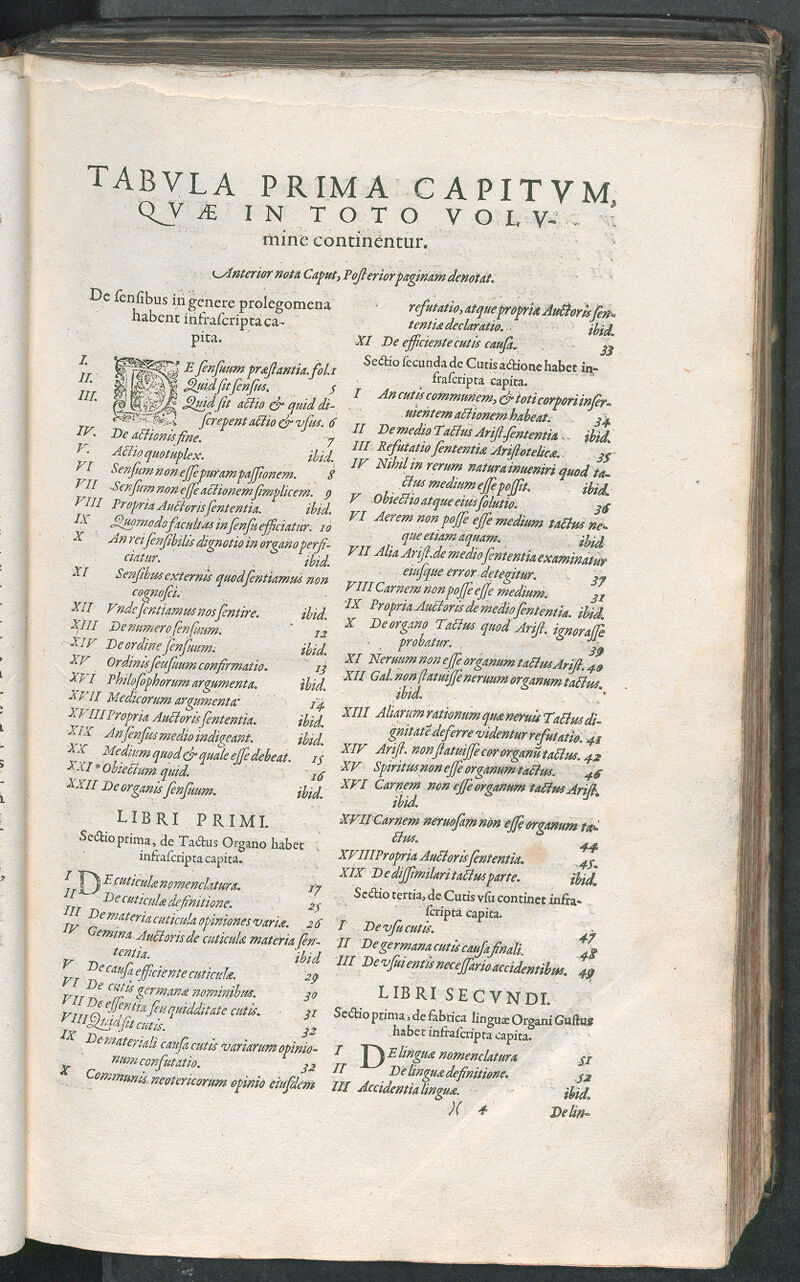 TABVLA PRIMA CAPITVM,
QVÆ IN TOTO VOLV-
mine continentur.
Anterior nota Caput, Posterior paginam denotat.
De sensibus in genere prolegomena
habent infrascripta ca-
pita.
I. DE sensuum præstantia. fol. 1
II. Quid sit sensus. 5
III. Quid sit actio & quid di-
screpent actio & vsus. 6
IV. De actionis fine. 7
V. Actio quotuplex. ibid.
VI Sensum non esse puram passionem. 8
VII Sensum non esse actionem simplicem. 9
VIII Propria Auctoris sententia. ibid.
IX Quomodo facultas in sensu efficiatur. 10
X An rei sensibilis dignotio in organo perfi-
ciatur. ibid.
XI Sensibus externis quod sentiamus non
cognosci.
XII Vnde sentiamus nos sentire. ibid.
XIII De numero sensuum. 12
XIV De ordine sensuum. ibid.
XV Ordinis seusuum confirmatio. 13
XVI Philosophorum argumenta. ibid.
XVII Medicorum argumenta 14
XVIII Propria Auctoris sententia. ibid.
XIX An sensus medio indigeant. ibid.
XX Medium quod & quale esse debeat. 15
XXI Obiectum quid. 16
XXII De organis sensuum. ibid.
LIBRI PRIMI.
Sectio prima, de Tactus Organo habet
infrascripta capita.
I DE cuticulæ nomenclatura. 17
II De cuticulæ definitione. 25
III De materia cuticula opiniones variæ. 26
IV Gemina Auctoris de cuticulæ materia sen-
tentia. ibid
V De causa efficiente cuticulæ. 29
VI De cutis germanæ nominibus. 30
VII De essentia seu quidditate cutis. 31
VIII Quid sit cutis. 32
IX De materiali causa cutis variarum opinio-
num confutatio. 32
X Communis neotericorum opinio eiusdem
refutatio, atque propriæ Auctoris sen-
tentiæ declaratio. ibid.
XI De efficiente cutis causa. 33
Sectio secunda de Cutis actione habet in-
frascripta capita.
I An cutis communem, & toti corpori inser-
uientem actionem habeat. 34
II De medio Tactus Arist. sententia ibid.
III Refutatio sententiæ Aristotelicæ. 35
IV Nihil in rerum natura inueniri quod ta-
ctus medium esse possit. ibid.
V Obiectio atque eius solutio. 36
VI Aerem non posse esse medium tactus ne-
que etiam aquam. ibid
VII Alia Arist. de medio sententia examinatur
eiusque error detegitur. 37
VIII Carnem non posse esse medium. 31
IX Propria Auctoris de medio sententia. ibid.
X De organo Tactus quod Arist. ignorasse
probatur. 39
XI Neruum non esse organum tactus Arist. 40
XII Gal. non statuisse neruum organum tactus.
ibid.
XIII Aliarum rationum quæ neruis Tactus di-
gnitatē deferre videntur refutatio. 41
XIV Arist. non statuisse cor organū tactus. 42
XV Spiritus non esse organum tactus. 46
XVI Carnem non esse organum tactus Arist.
ibid.
XVII Carnem neruosam non esse organum ta-
ctus. 44
XVIII Propria Auctoris sententia. 45.
XIX De dissimilari tactus parte. ibid.
Sectio tertia, de Cutis vsu continet infra-
scripta capita.
I De vsu cutis. 47
II De germana cutis causa finali. 48
III De vsui entis necessario accidentibus. 49
LIBRI SECVNDI.
Sectio prima, de fabrica linguæ Organi Gustus
habet infrascripta capita.
I DE linguæ nomenclatura 51
II De linguæ definitione. 52
III Accidentia linguæ. ibid.
)( 4 De lin-